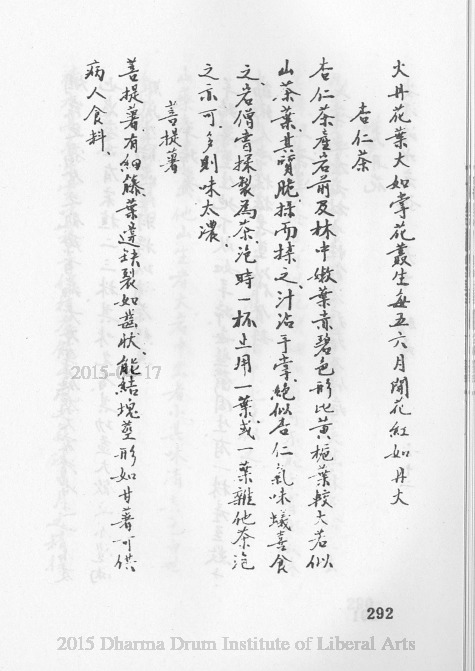 火丹花葉大如掌花叢生每五六月開花紅如丹火
杏仁茶
杏仁茶產岩前及林中嫩葉赤碧色形比黃梔葉較大若似
山茶葉其質脆採而揉之汁沾手掌絕似杏仁氣味蟻喜食
之岩僧嘗採製為茶泡時一杯止用一葉或一葉雜他茶泡
之亦可多則味太濃
菩提薯
菩提薯有細籐葉邊缺裂如齒狀能結塊莖形如甘薯可供
病人食料
2015-0 -17
292
2015 Dharma Drum Institute of Liberal Arts